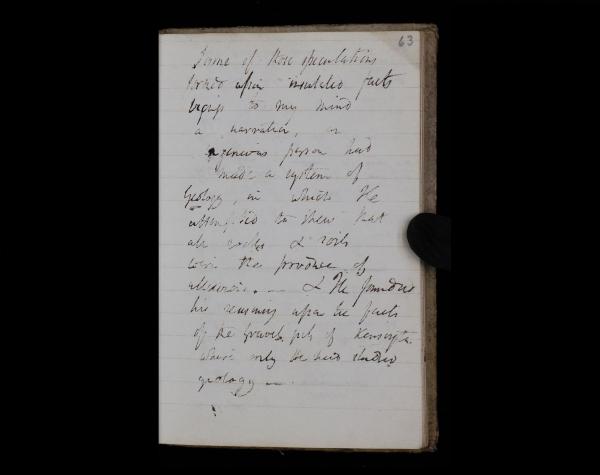 63
Some of those speculations
formed upon insulated facts
brings to my mind
a narration, an
ingenious person had
made a system of
Geology, in which He
attempted to shew that
all rocks & soils
were the produce of
alluvion. — & He founded
his reasoning upon the facts
of the gravel pits of Kensington
where only He had studied
geology —.